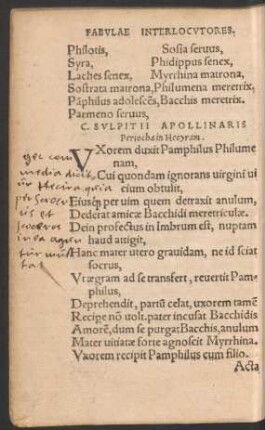 FABVLAE INTERLOCVTORES.
Philotis, Sosia seruus,
Syra, Phidippus senex,
Laches senex, Myrrhina matrona,
Sostrata matrona, Philumena meretrix,
Pãphilus adolescẽs, Bacchis meretrix.
Parmeno seruus,
C. SVLPITII APOLLINARIS
Periocha in Hecyram.
VXorem duxit Pamphilus Philume
nam,
Cui quondam ignorans uirgini ui
cium obtulit,
Eiusq́; per uim quem detraxit anulum,
Dederat amicæ Bacchidi meretriculæ.
Dein profectus in Imbrum est, nuptam
haud attigit,
Hanc mater utero grauidam, ne id sciat
socrus,
Vt ægram ad se transfert, reuertit Pam-
philus,
Deprehendit, partũ celat, uxorem tamẽ
Recipe nõ uolt. pater incusat Bacchidis
Amorẽ, dum se purgat Bacchis, anulum
Mater uitiatæ forte agnoscit Myrrhina.
Vxorem recipit Pamphilus cum filio.
Acta
media
Hecira quia
per
et